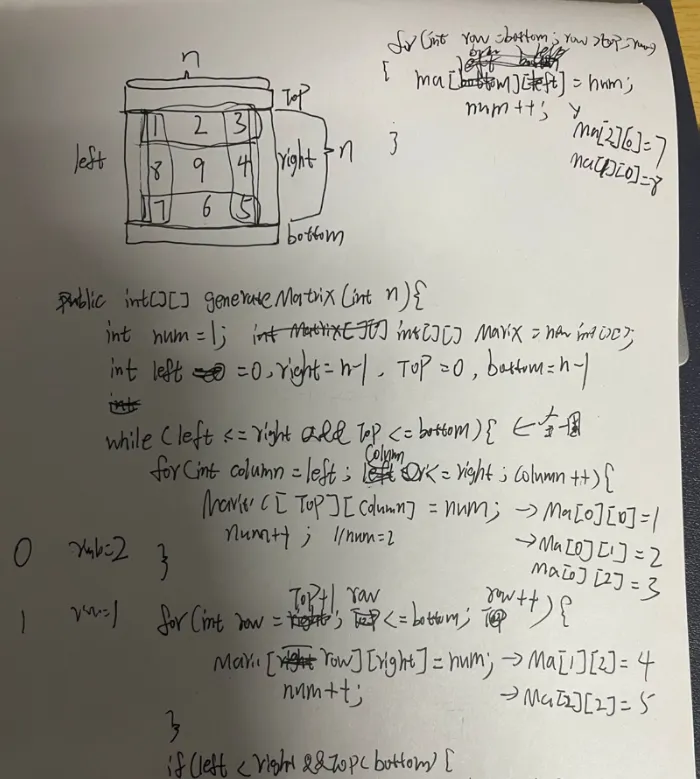 n
Top
1 2 3
left 8 9 4 right n
7 6 5
bottom
for(int row = bottom; row > top; row
{
ma[][left] = num;
num++;
}
Ma[2][0]=7
ma[1][0]=8
public int[][] generateMatrix(int n){
int num = 1; int Matrix[][] int[][] Marix = new int[][];
int left = 0, right = n-1, Top = 0, bottom = n-1
int
while (left <= right && Top <= bottom){ ←
for(int column = left; column <= right; column ++){
[Top][column] = num; → Ma[0][0]=1
num++; //num=2 → Ma[0][1]=2
0 =2 } ma[0][2]=3
1 =1 for(int row = Top+1; row <= bottom; row++){
[row][right] = num; → Ma[1][2]=4
num++; → Ma[2][2]=5
}
if(left < right && Top < bottom){